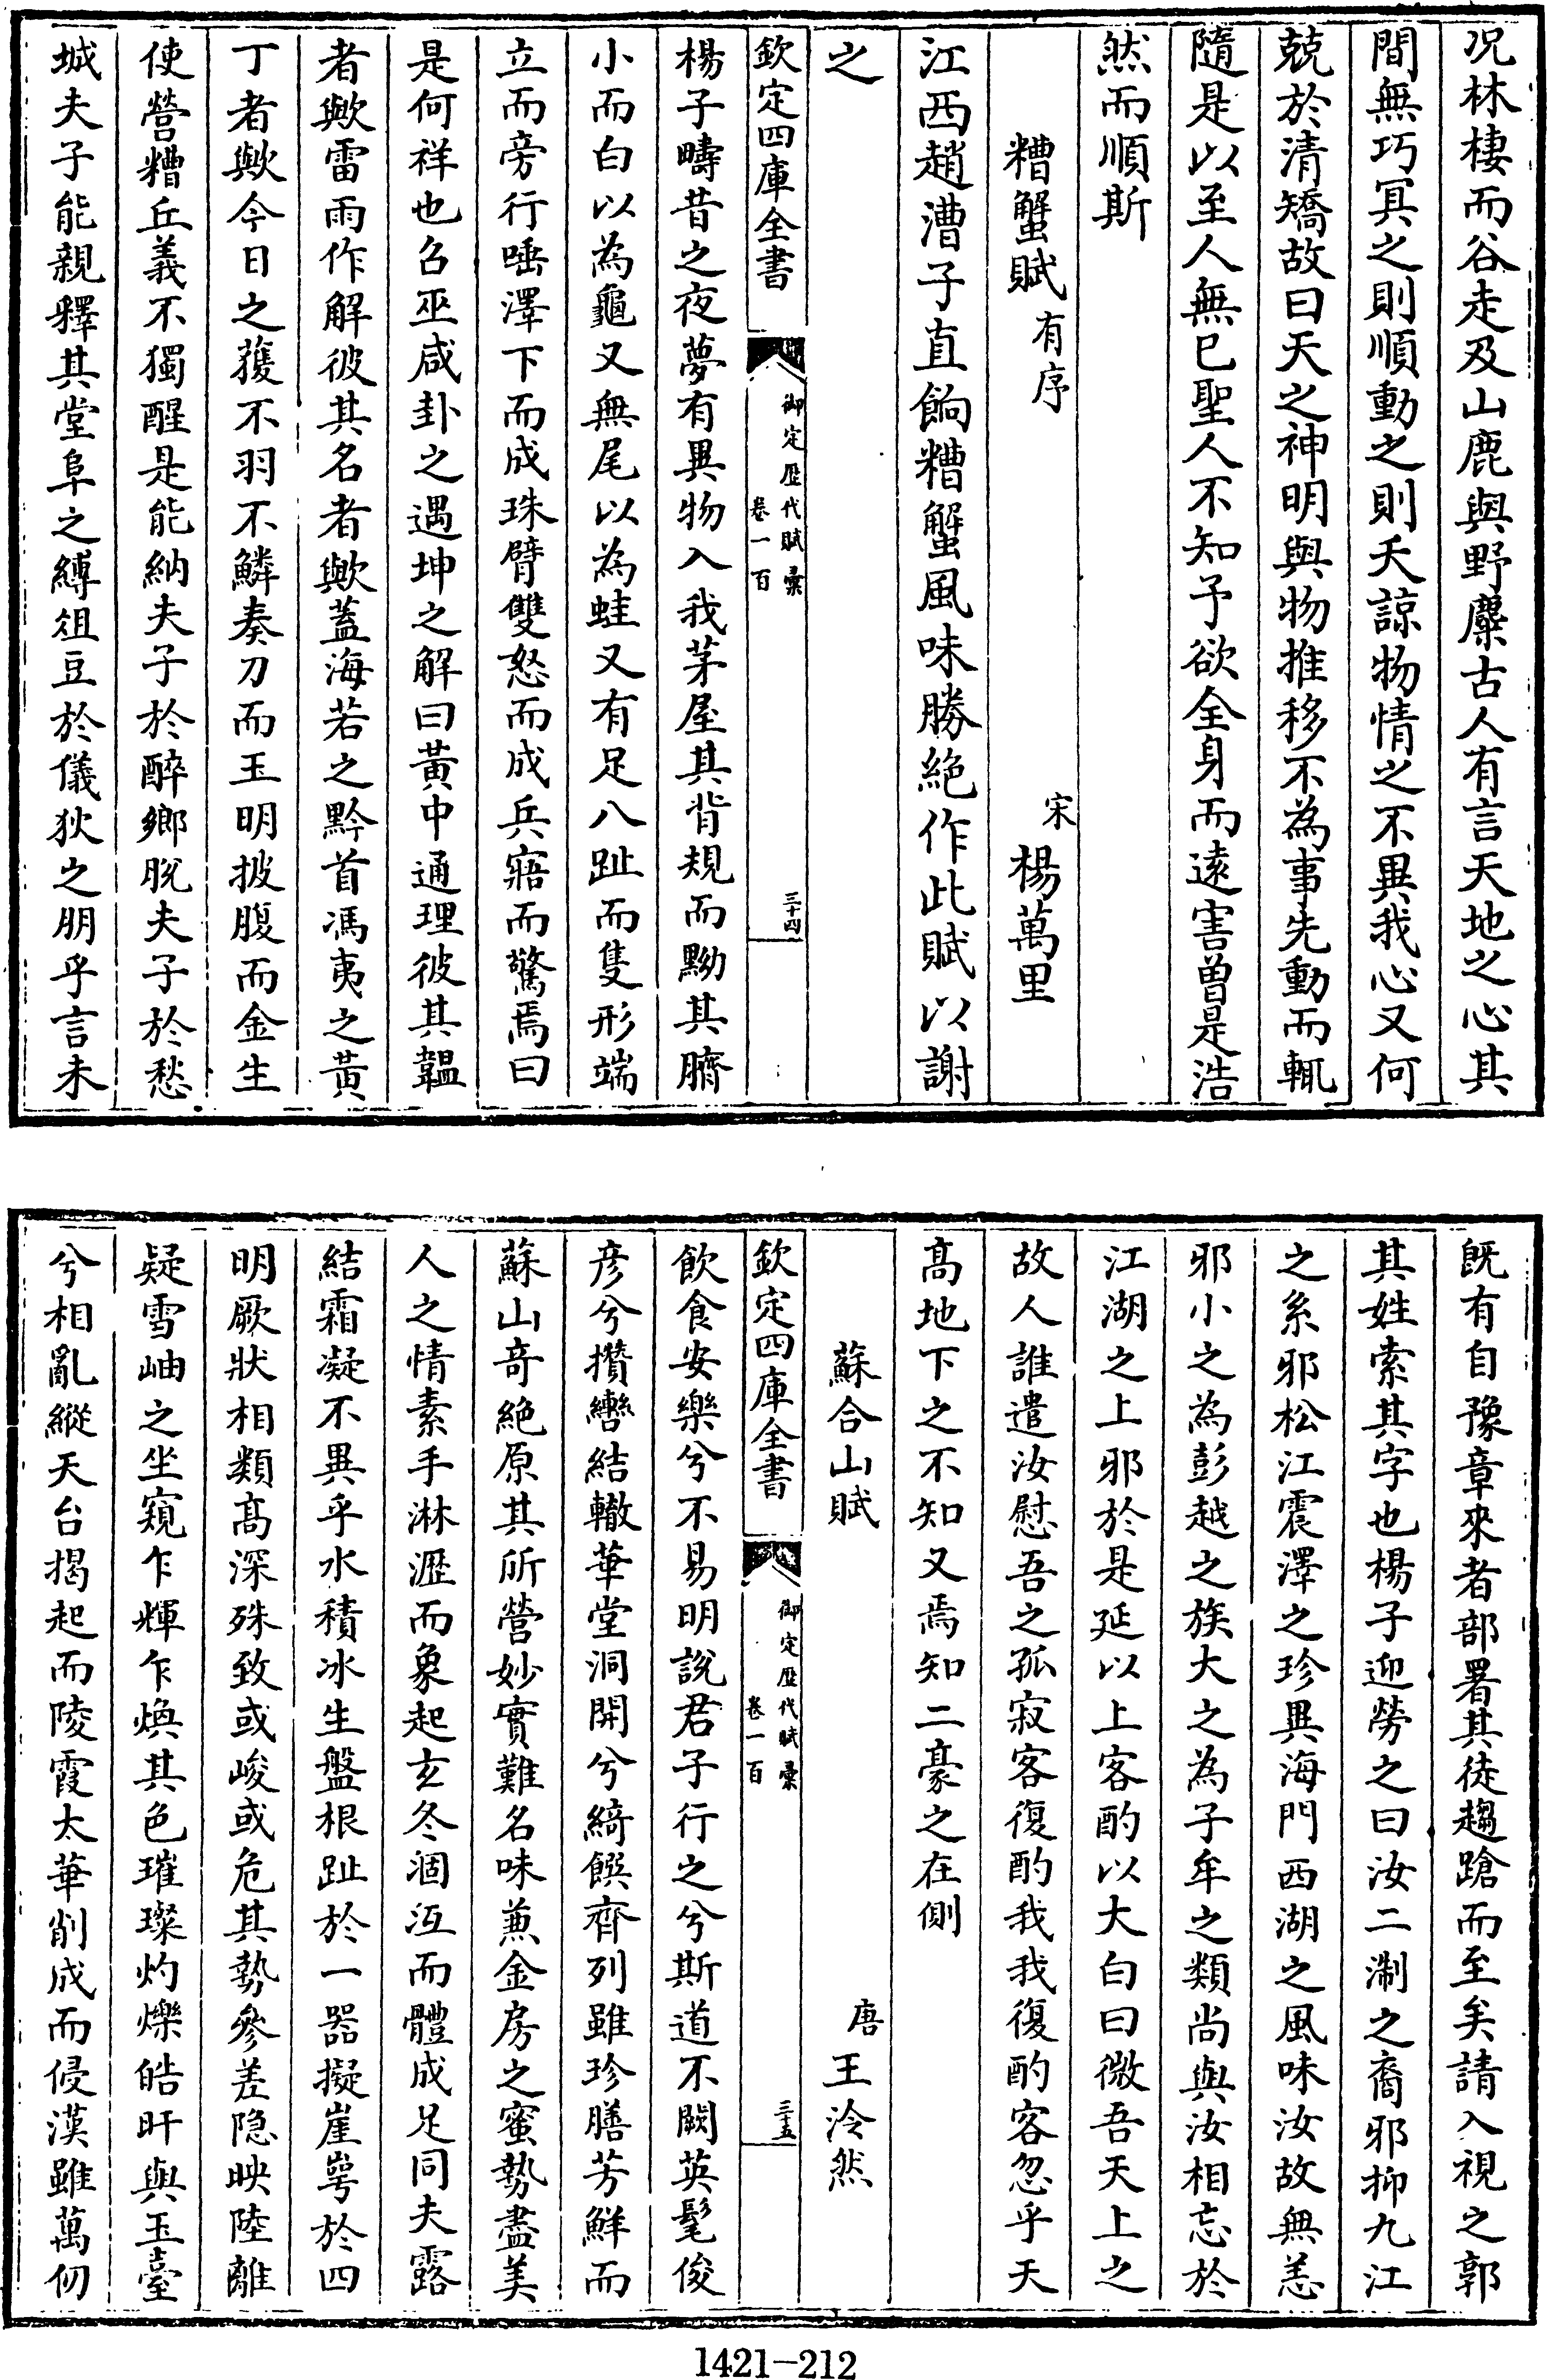 况林棲而谷走及山鹿與野麋古人有言天地之心其
間無巧冥之則順動之則夭諒物情之不異我心又何
兢於清矯故曰天之神明與物推移不為事先動而輒
隨是以至人無已聖人不知予欲全身而遠害曽是浩
然而順斯
糟蟹賦有序 宋楊萬里
江西趙漕子直餉糟蟹風味勝絶作此賦以謝
之
欽定四庫全書 御定歴代賦彙 卷一百 三十四
楊子疇昔之夜夢有異物入我茅屋其背規而黝其臍
小而白以為龜又無尾以為蛙又有足八趾而隻形端
立而旁行唾澤下而成珠臂雙怒而成兵寤而驚焉曰
是何祥也召巫咸卦之遇坤之解曰黃中通理彼其韞
者歟雷雨作解彼其名者歟蓋海若之黔首馮夷之黃
丁者歟今日之獲不羽不鱗奏刀而玉明披腹而金生
使營糟丘義不獨醒是能納夫子於醉鄉脫夫子於愁
城夫子能親釋其堂阜之縛俎豆於儀狄之朋乎言未
既有自豫章來者部署其徒趨蹌而至矣請入視之郭
其姓索其字也楊子迎勞之曰汝二淛之裔邪抑九江
之系邪松江震澤之珍異海門西湖之風味汝故無恙
邪小之為彭越之族大之為子牟之類尚與汝相忘於
江湖之上邪於是延以上客酌以大白曰微吾天上之
故人誰遣汝慰吾之孤寂客復酌我我復酌客忽乎天
高地下之不知又焉知二豪之在側
蘇合山賦 唐王泠然
欽定四庫全書 御定歴代賦彙 卷一百 三十五
飲食安樂兮不易明說君子行之兮斯道不闕英髦俊
彦兮攢轡結轍華堂洞開兮綺饌齊列雖珍膳芳鮮而
蘇山竒絶原其所營妙實難名味兼金房之蜜勢盡美
人之情素手淋瀝而象起玄冬涸沍而體成足同夫露
結霜凝不異乎水積冰生盤根趾於一器擬崖崿於四
明厥狀相類髙深殊致或峻或危其勢參差隐映陸離
疑雪岫之坐窺乍輝乍煥其色璀璨灼爍皓旰與玉臺
兮相亂縱天台揭起而陵霞太華削成而侵漢雖萬仞
1421-212